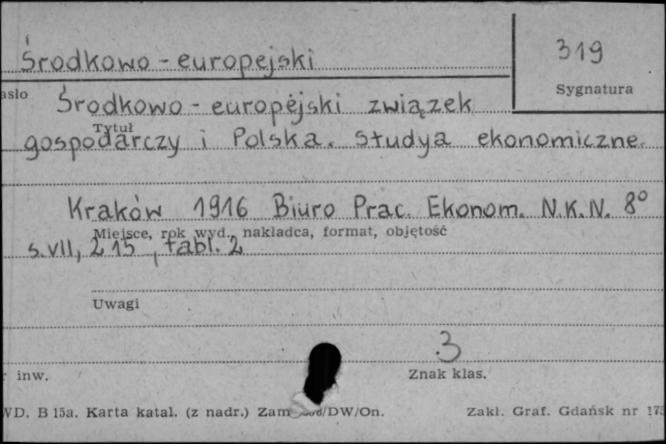 Środkowo-europejski
319
Sygnatura
asło
Środkowo-europejski związek
Tytuł
gospodarczy i Polska. Studya ekonomiczne.
Kraków 1916 Biuro Prac Ekonom. N.K.N. 8°
Miejsce, rok wyd., nakładca, format, objętość
s. VII, 215, tabl. 2
Uwagi
3
r inw.
Znak klas.
WD. B 15a. Karta katal. (z nadr.) Zam /DW/On.
Zakł. Graf. Gdańsk nr 175